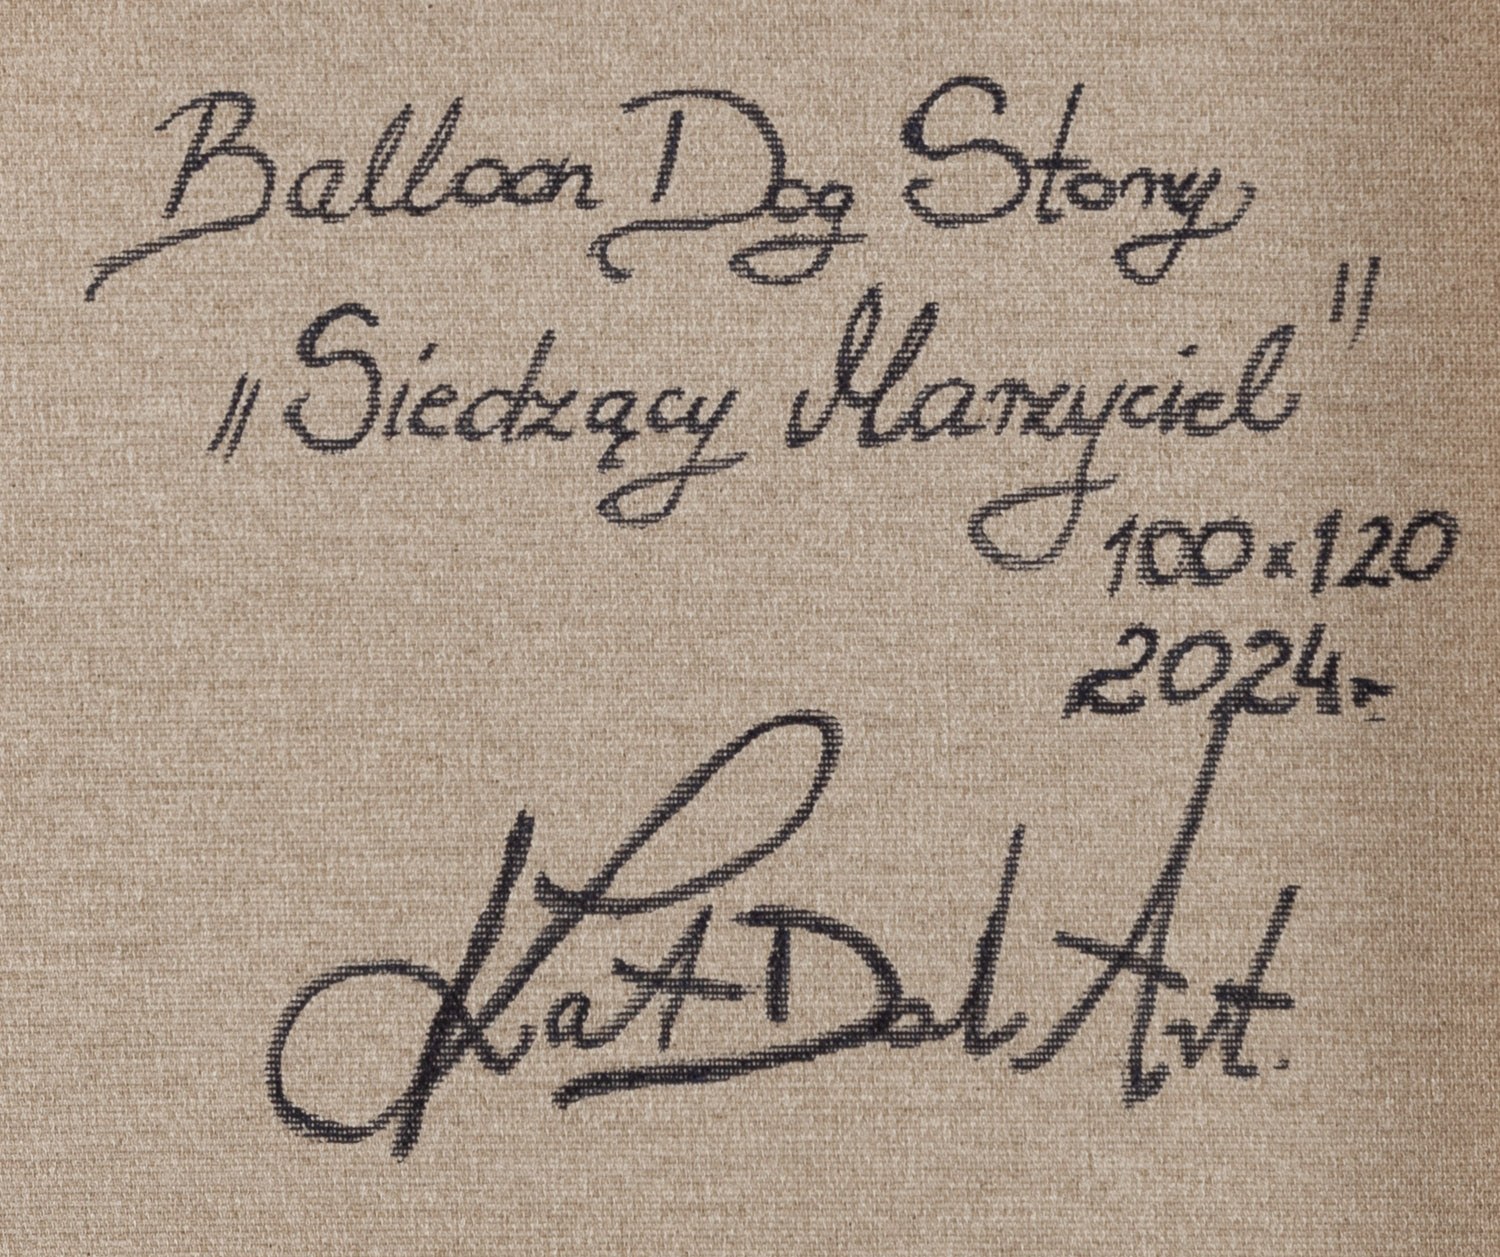 Balloon Dog Story
„Siedzący Marzyciel”
100x120
2024r
KatDalArt.